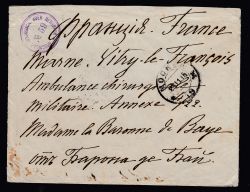 Франція. France
Marne Vitry-le-François
Ambulance chirurg
Militaire Annexe
Madame la Baronne de Baye
отъ Барона де Бай